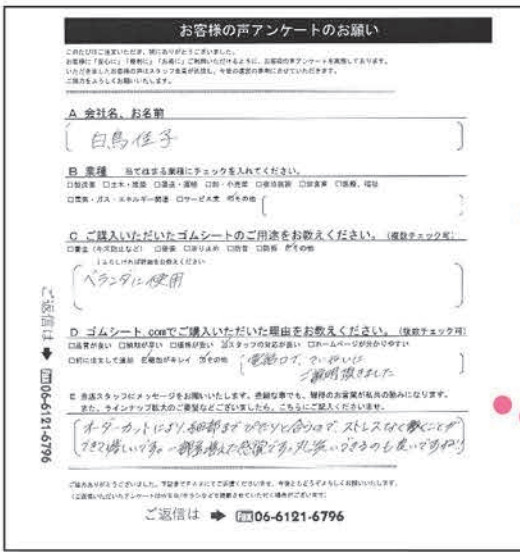 お客様の声アンケートのお願い
このたびはご注文いただき、誠にありがとうございました。
お客様に「安心に」「便利に」「お得に」ご利用いただけるように、お客様の声アンケートを実施しております。
いただきましたお客様の声はスタッフ全員が拝見し、今後の運営の参考にさせていただきます。
ご協力をよろしくお願いいたします。
A 会社名、お名前
白鳥佳子
B 業種 当て はまる業種にチェックを入れてください。
□製造業 □土木・建築 □運送・運輸 □卸・小売業 □宿泊施設 □飲食業 □医療、福祉
□電気・ガス・エネルギー関連 □サービス業 ☑その他
C ご購入いただいたゴムシートのご用途をお教えください。(複数チェック可)
□養生(キズ防止など) □緩衝 □滑り止め □防音 □防振 ☑その他
よろしければ詳細をお教えください
ベランダに使用
D ゴムシート.comでご購入いただいた理由をお教えください。(複数チェック可)
□品質が良い □納期が早い □価格が良い ☑スタッフの対応が良い □ホームページが分かりやすい
□前に注文して満足 ☑梱包がキレイ ☑その他
電話口で、ていねいに
ご説明頂きました
E 当店スタッフにメッセージをお願いいたします。些細な事でも、皆様のお言葉が私共の励みになります。
また、ラインナップ拡大のご要望などございましたら、こちらにご記入くださいませ。
オーダーカットにより、細部までぴたりと合うので、ストレスなく敷くことが
できて嬉しいです。一部屋増えた感覚です。丸洗いできるのも良いですね!!
ご協力ありがとうございました。下記までFAXにてご返信くださいませ。今後ともどうぞよろしくお願いいたします。
(ご返信いただいたアンケートはWEBやチラシなどで掲載させていただく場合がございます)
ご返信は ➡ FAX06-6121-6796
ご返信は ➡ FAX06-6121-6796